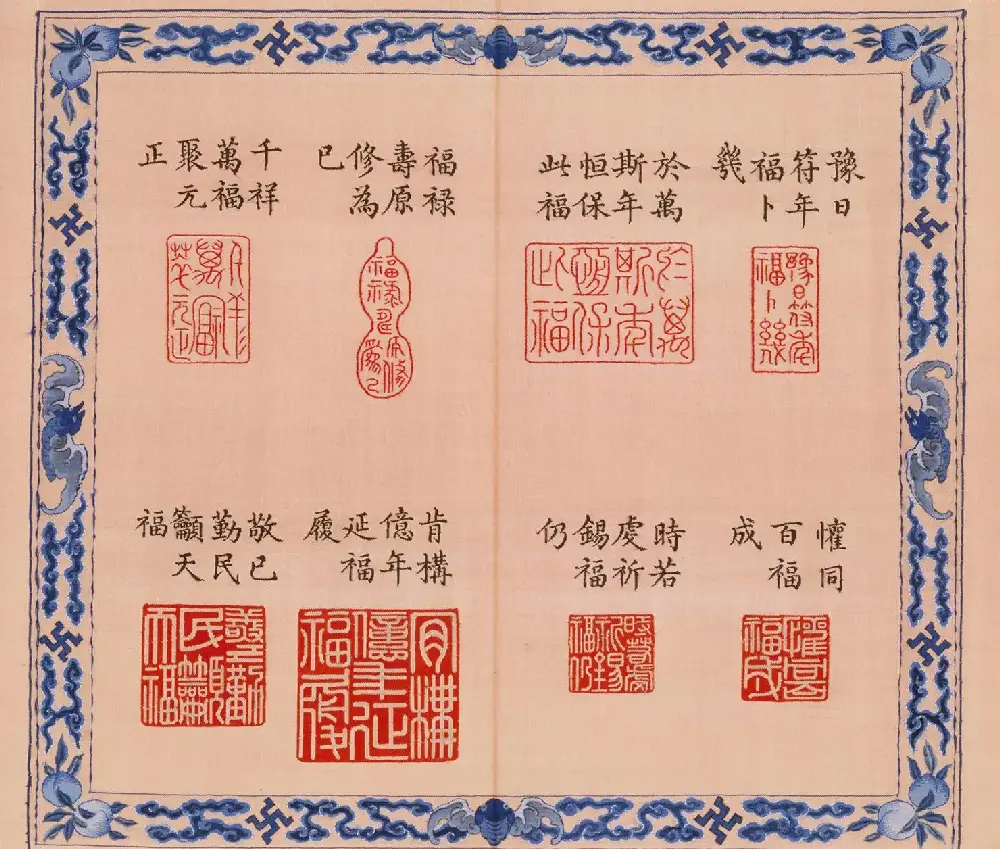 豫日
符年
福卜
幾
於萬
斯年
恒保
此福
福禄
壽原
修為
已
千祥
萬福
聚元
正
懽同
百福
成
時若
虔祈
錫福
仍
肯構
億年
延福
履
敬已
勤民
籲天
福